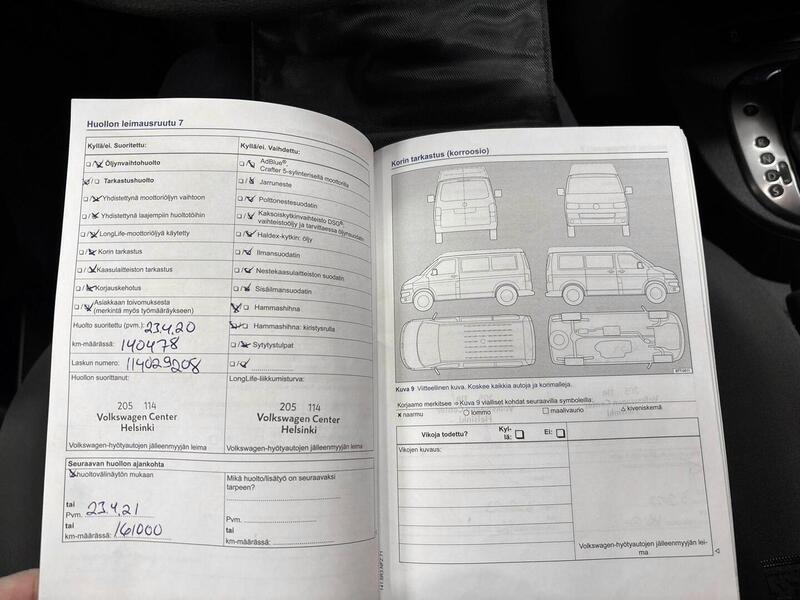 Huollon leimausruutu 7
Kyllä/ei. Suoritettu:
Öljynvaihtohuolto
Tarkastushuolto
Yhdistettynä moottoriöljyn vaihtoon
Yhdistettynä laajempiin huoltotöihin
LongLife-moottoriöljyä käytetty
Korin tarkastus
Kaasulaitteiston tarkastus
Korjauskehotus
Asiakkaan toivomuksesta
(merkintä myös työmääräykseen)
Huolto suoritettu (pvm.): 23.4.20
km-määrässä: 140478
Laskun numero: 114029208
Huollon suorittanut:
205 114
Volkswagen Center
Helsinki
Volkswagen-hyötyautojen jälleenmyyjän leima
Kyllä/ei. Vaihdettu:
AdBlue®,
Crafter 5-sylinterisellä moottorilla
Jarruneste
Polttonestesuodatin
Kaksoiskytkinvaihteisto DSG®:
vaihteistoöljy ja tarvittaessa öljynsuodatin
Haldex-kytkin: öljy
Ilmansuodatin
Nestekaasulaitteiston suodatin
Sisäilmansuodatin
Hammashihna
Hammashihna: kiristysrulla
Sytytystulpat
LongLife-liikkumisturva:
205 114
Volkswagen Center
Helsinki
Volkswagen-hyötyautojen jälleenmyyjän leima
Seuraavan huollon ajankohta
huoltovälinäytön mukaan
tai
Pvm. 23.4.21
tai
km-määrässä: 161000
Mikä huolto/lisätyö on seuraavaksi
tarpeen?
Pvm.
tai
km-määrässä:
Korin tarkastus (korroosio)
Kuva 9 Viitteellinen kuva. Koskee kaikkia autoja ja korimalleja.
Korjaamo merkitsee ⇒ Kuva 9 vialliset kohdat seuraavilla symboleilla:
× naarmu ○ lommo □ maalivaurio △ kiveniskemä
Vikoja todettu? Kyl-
lä: Ei:
Vikojen kuvaus:
Volkswagen-hyötyautojen jälleenmyyjän lei-
ma
141.5R3.AFZ.71